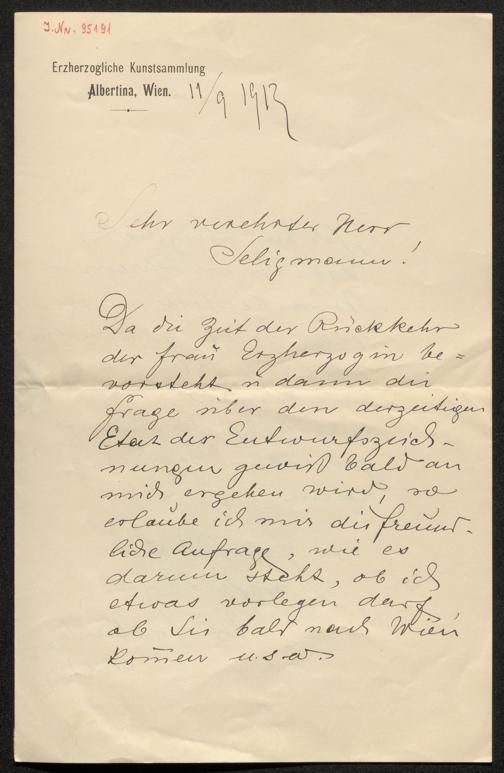 J. Nr. 95191
Erzherzogliche Kunstsammlung
Albertina, Wien. 11/9 1913
Sehr verehrter Herr
Seligmann!
Da die Zeit der Rückkehr
der Frau Erzherzogin be=
vorsteht u dann die
Frage über den derzeitigen
Etat der Entwurfszeich-
nungen gewiß bald an
mich ergehen wird, so
erlaube ich mir die freund-
liche Anfrage, wie es
darum steht, ob ich
etwas vorlegen darf,
ob Sie bald nach Wien
kom̄en u.s.w.